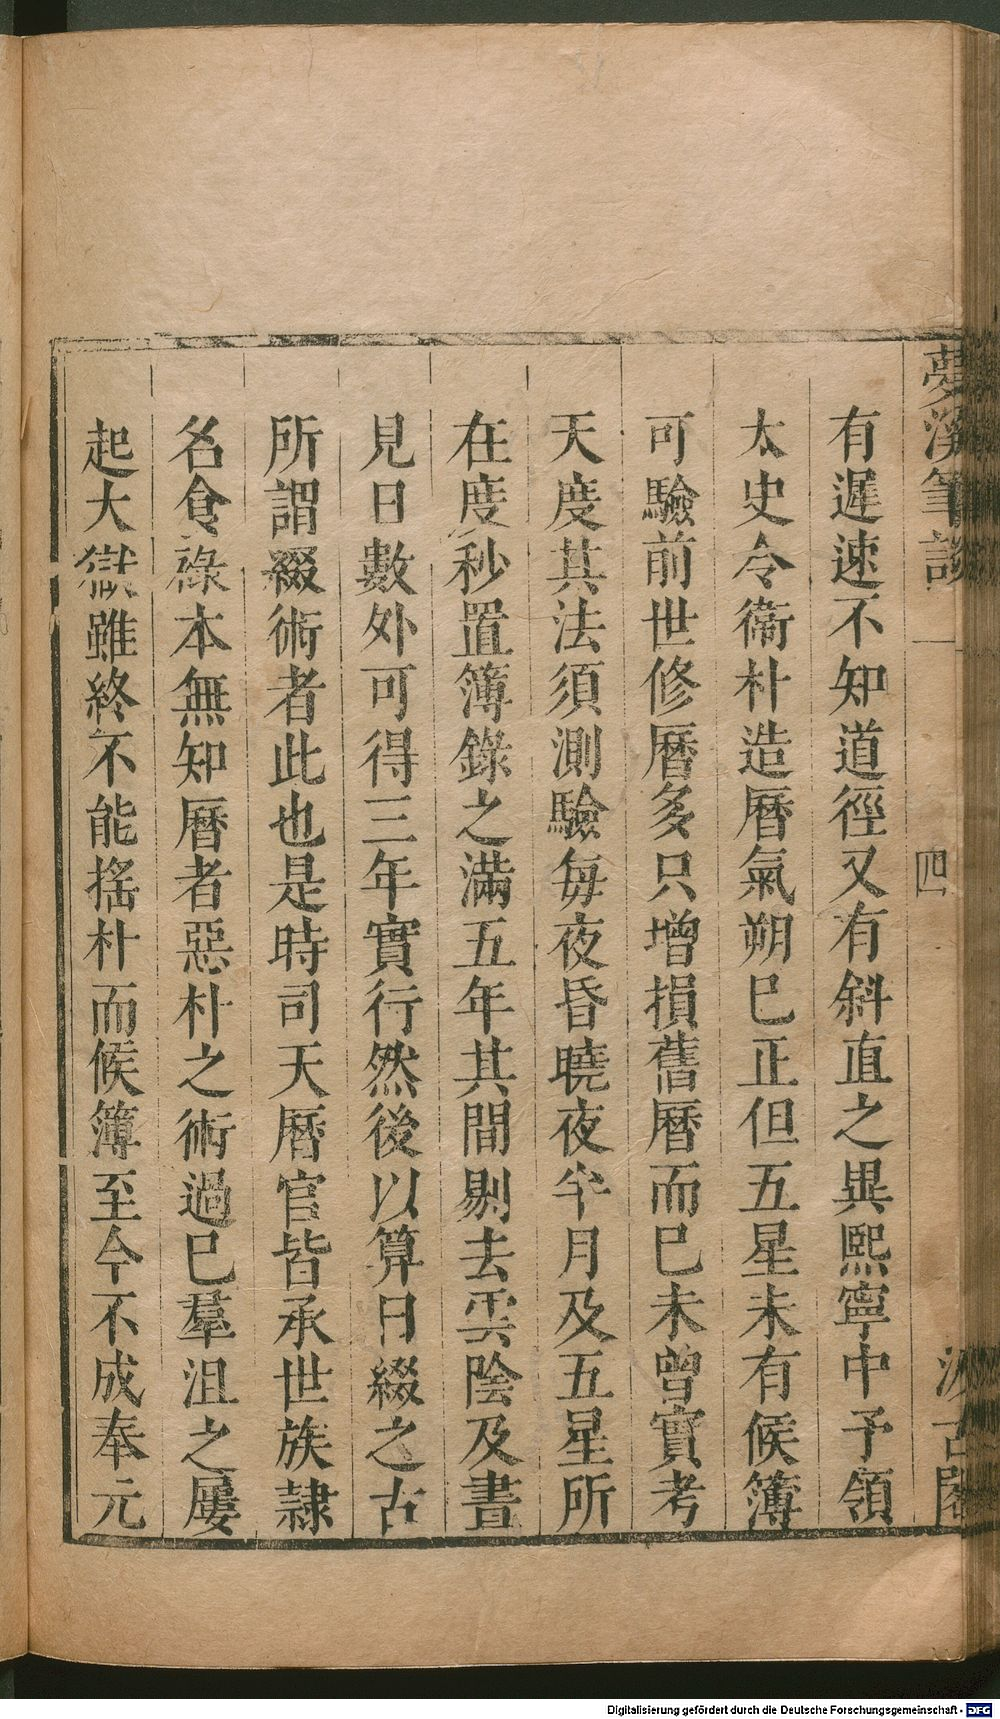 夢溪筆談 一 四 汲古閣
有遲速不知道徑又有斜直之異熙寧中予領
太史令衞朴造曆氣朔已正但五星未有候簿
可驗前世修曆多只增損舊曆而已未曾實考
天度其法須測驗每夜昏曉夜半月及五星所
在度秒置簿錄之滿五年其間剔去雲陰及晝
見日數外可得三年實行然後以算日綴之古
所謂綴術者此也是時司天曆官皆承世族隷
名食祿本無知曆者惡朴之術過已羣沮之屢
起大獄雖終不能搖朴而候簿至今不成奉元
Digitalisierung gefördert durch die Deutsche Forschungsgemeinschaft - DFG